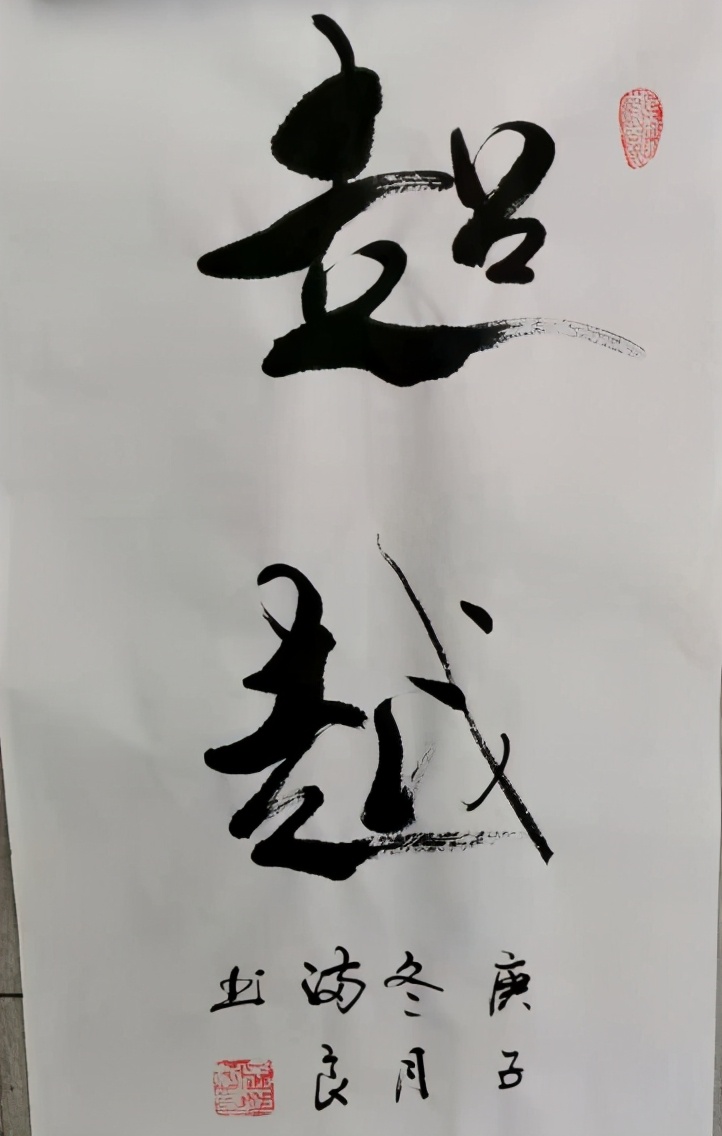 超
越
庚子
冬月
满良
书